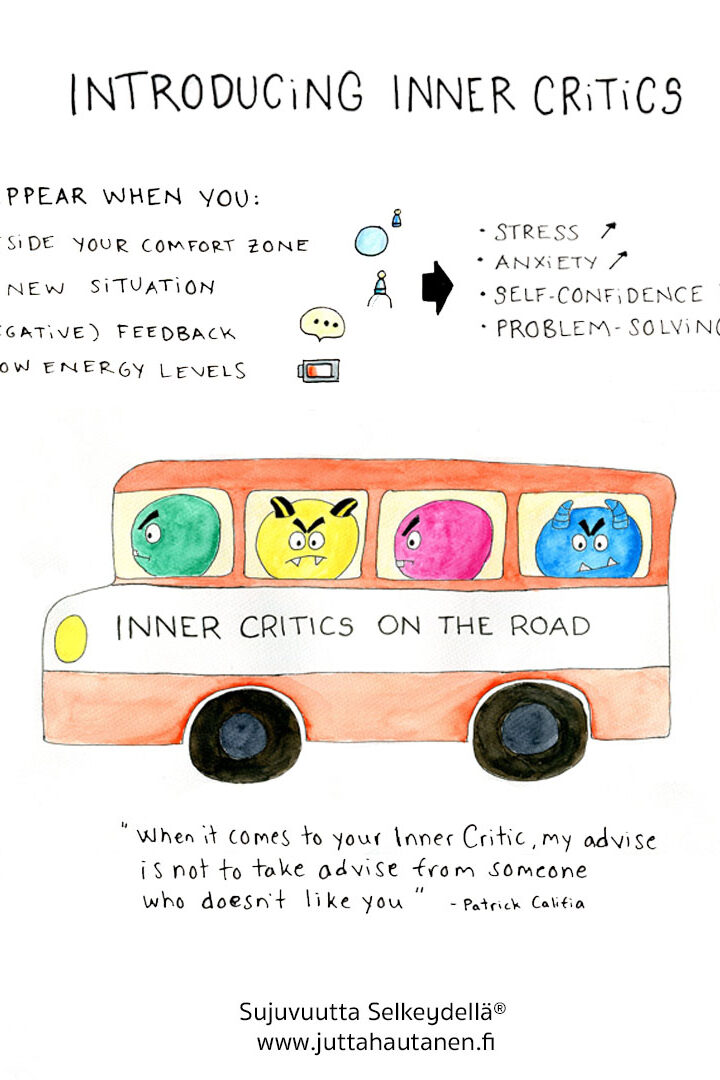 INTRODUCING INNER CRITICS
PPEAR WHEN YOU:
SIDE YOUR COMFORT ZONE
NEW SITUATION
GATIVE) FEEDBACK
OW ENERGY LEVELS
• STRESS ↗
• ANXIETY ↗
• SELF-CONFIDENCE
• PROBLEM-SOLVING
INNER CRITICS ON THE ROAD
"When it comes to your Inner Critic, my advise
is not to take advise from someone
who doesn't like you" - Patrick Califia
Sujuvuutta Selkeydellä®
www.juttahautanen.fi